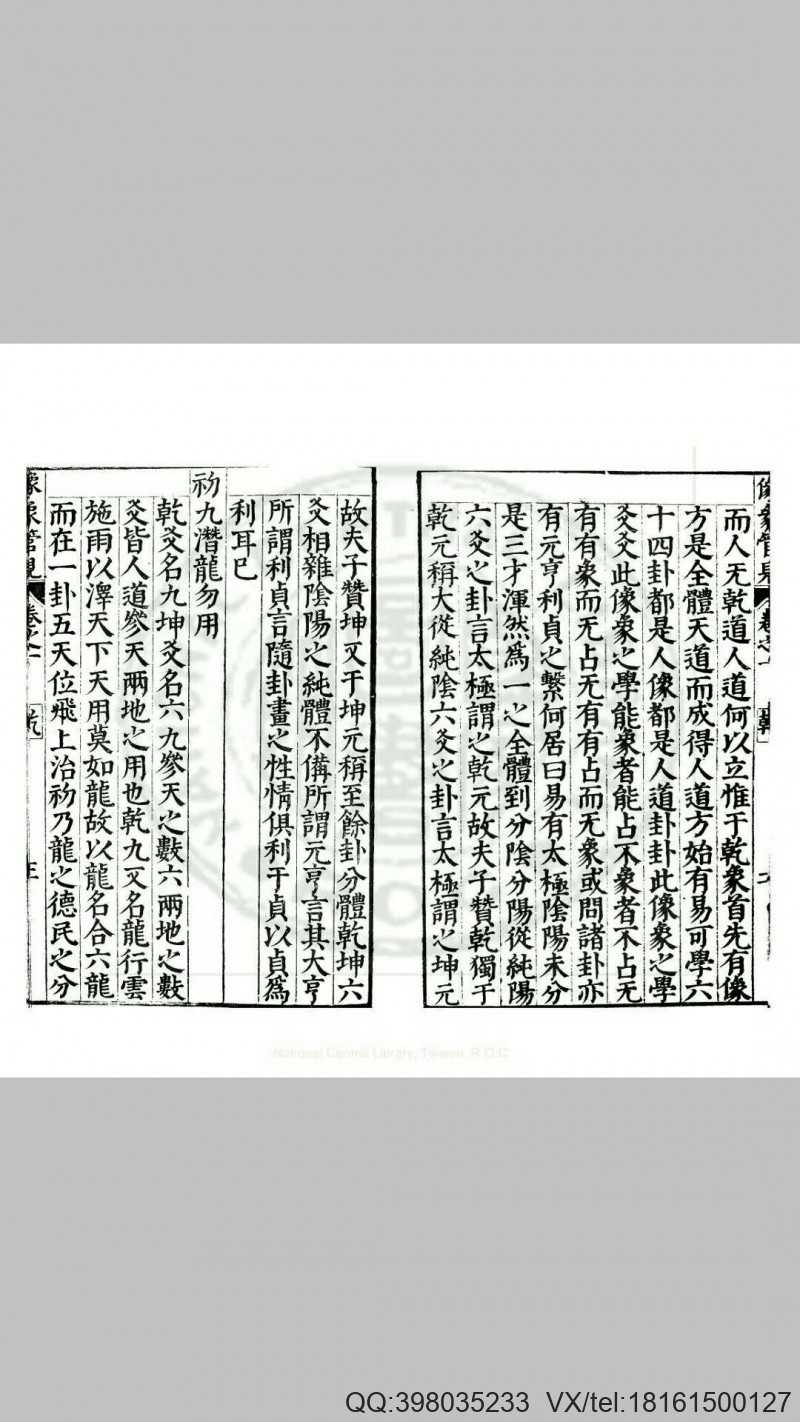 而人无乾道人道何以立惟于乾象首先有像
方是全體天道而成得人道方始有易可學六
十四卦都是人像都是人道卦卦此像象之學
爻爻此像象之學能象者能占不象者不占无
有有象而无占无有有占而无象或問諸卦亦
有元亨利貞之繫何居曰易有太極陰陽未分
是三才渾然爲一之全體到分陰分陽從純陽
六爻之卦言太極謂之乾元故夫子贊乾獨于
乾元稱大從純陰六爻之卦言太極謂之坤元
故夫子贊坤又于坤元稱至餘卦分體乾坤六
爻相雜陰陽之純體不備所謂元亨言其大亨
所謂利貞言隨卦畫之性情俱利于貞以貞爲
利耳已
初九潛龍勿用
乾爻名九坤爻名六九參天之數六兩地之數
爻皆人道參天兩地之用也乾九又名龍行雲
施雨以澤天下天用莫如龍故以龍名合六龍
而在一卦五天位飛上治初乃龍之德民之分
像象管見 卷之一
National Central Library, Taiwan, R.O.C
QQ:398035233 VX/tel:18161500127